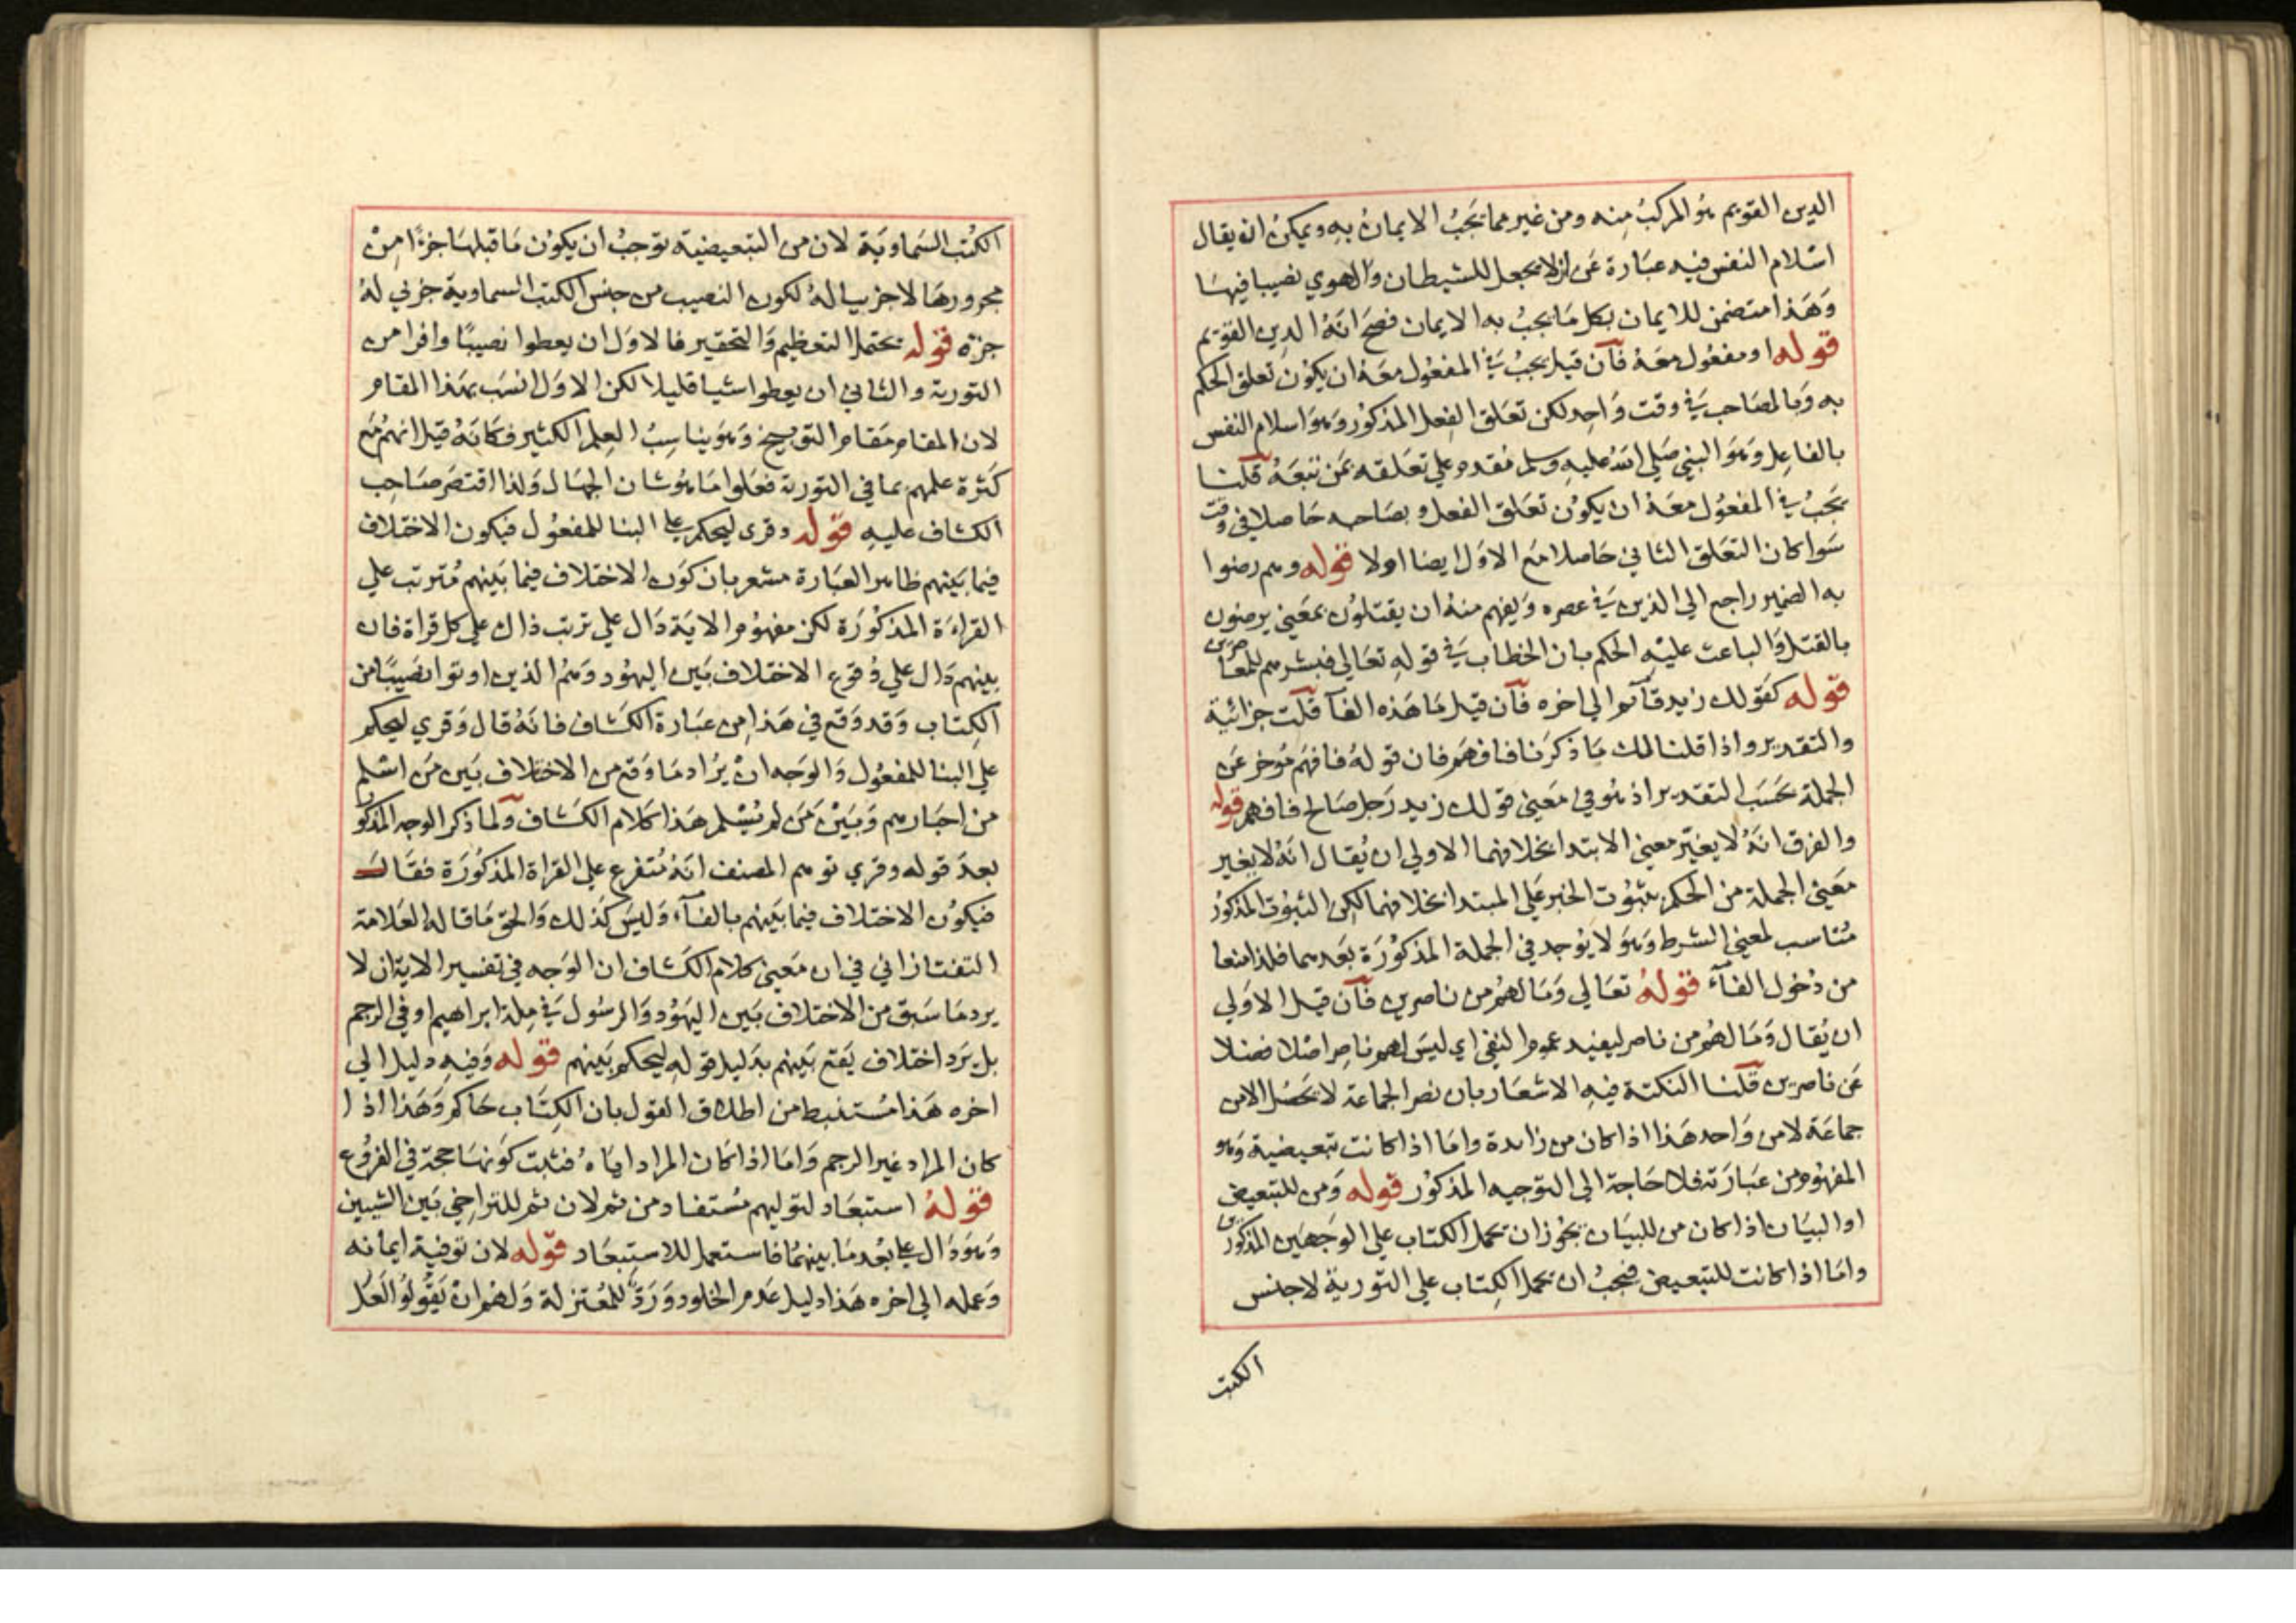 الدين القويم هو المركب منه ومن غير مما يجب الايمان به ويمكن ان يقال
اسلام النفس فيه عبارة عن ان لا يجعل للشيطان والهوي نصيبا فيها
وهذا متضمن للايمان بكل ما يجب به الايمان فصح انه الدين القويم
قوله او مفعول معه فان قيل يجب في المفعول معه ان يكون تعلق الحكم
به وبالمصاحب في وقت واحد لكن تعلق الفعل المذكور وهو اسلام النفس
بالفاعل وهو النبي صلي الله عليه وسلم مقدم علي تعلقه بمن تبعه قلنا
يجب في المفعول معه ان يكون تعلق الفعل و بصاحبه حاصلا في وقت
سوا كان التعلق الثاني حاصلا مع الاول ايضا اولا قوله وهم رضوا
به الضمير راجع الي الذين في عصره ويفهم منه ان يقتلون بمعني يرضون
بالقتل والباعث عليه الحكم بان الخطاب في قوله تعالي فبشرهم للمعاصرين
قوله كقولك زيد فافهم الي اخره فان قيل ما هذه الفا قلت جزائية
والتقدير واذا قلنا لك ما ذكرنا فافهم فان قوله فافهم موخر عن
الجملة بحسب التقدير اذ هو في معني قولك زيد رجل صالح فافهم قوله
والفرق انه لا يغير معني الابتدا بخلافهما الاولي ان يقال انه لا يغير
معني الجملة من الحكم بثبوت الخبر علي المبتدا بخلافهما لكن الثبوت المذكور
مناسب لمعني الشرط وهو لا يوجد في الجملة المذكورة بعدهما فلذا منعا
من دخول الفآء قوله تعالي وما لهم من ناصرين فان قيل الاولي
ان يقال وما لهم من ناصر ليفيد عموم النفي اي ليس لهم ناصر اصلا فضلا
عن ناصرين قلنا النكتة فيه الاشعار بان نصر الجماعة لا يحصل الا من
جماعة لا من واحد هذا اذا كان من زايدة واما اذا كانت تبعيضية وهو
المفهوم من عبارته فلا حاجة الي التوجيه المذكور قوله ومن للتبعيض
او البيان اذا كان من للبيان يجوز ان يحمل الكتاب علي الوجهين المذكورين
واما اذا كانت للتبعيض فيجب ان يحمل الكتاب علي التورية لا جنس
الكتب
الكتب السماوية لان من التبعيضية توجب ان يكون ما قبلها جزءا من
مجرورها لا جزييا له لكون النصيب من جنس الكتب السماوية جزئي له
جزءه قوله يحتمل التعظيم والتحقير فالاول ان يعطوا نصيبا وافرا من
التورية والثاني ان يعطوا شيا قليلا لكن الاول انسب بهذا المقام
لان المقام مقام التوبيخ وهو يناسب العلم الكثير فكانه قيل انهم مع
كثرة علمهم بما في التورية فعلوا ما هو شان الجهال ولذا اقتصر صاحب
الكشاف عليه قوله وقري ليحكم علي البنا للمفعول فيكون الاختلاف
فيما بينهم ظاهر العبارة مشعر بان كون الاختلاف فيما بينهم مترتب علي
القراءة المذكورة لكن مفهوم الاية دال علي ترتب ذلك علي كل قراة فان
بينهم دال علي وقوع الاختلاف بين اليهود وهم الذين اوتوا نصيبا من
الكتاب وقد وقع في هذا من عبارة الكشاف فانه قال وقري ليحكم
علي البنا للمفعول والوجه ان يراد ما وقع من الاختلاف بين من اسلم
من احبارهم وبين من لم يسلم هذا كلام الكشاف ولما ذكر الوجه المذكو
بعد قوله وقري توهم المصنف انه متفرع علي القراة المذكورة فقال
فيكون الاختلاف فيما بينهم بالفآء وليس كذلك والحق ما قاله العلامة
التفتازاني في ان معني كلام الكشاف ان الوجه في تفسير الاية ان لا
يرد ما سبق من الاختلاف بين اليهود والرسول في ملة ابراهيم او في الرجم
بل يرد اختلاف يقع بينهم بدليل قوله ليحكم بينهم قوله وفيه دليل الي
اخره هذا مستنبط من اطلاق القول بان الكتاب حاكم وهذا اذا
كان المراد غير الرجم واما اذا كان المراد اياه فثبت كونها حجة في الفروع
قوله استبعاد لتوليهم مستفاد من ثم لان ثم للتراخي بين الشيين
وهو دال علي بعد ما بينهما فاستعمل للاستبعاد قوله لان توفية ايمانه
وعمله الي اخره هذا دليل عدم الخلود ورد للمعتزلة ولهم ان يقولوا لعل